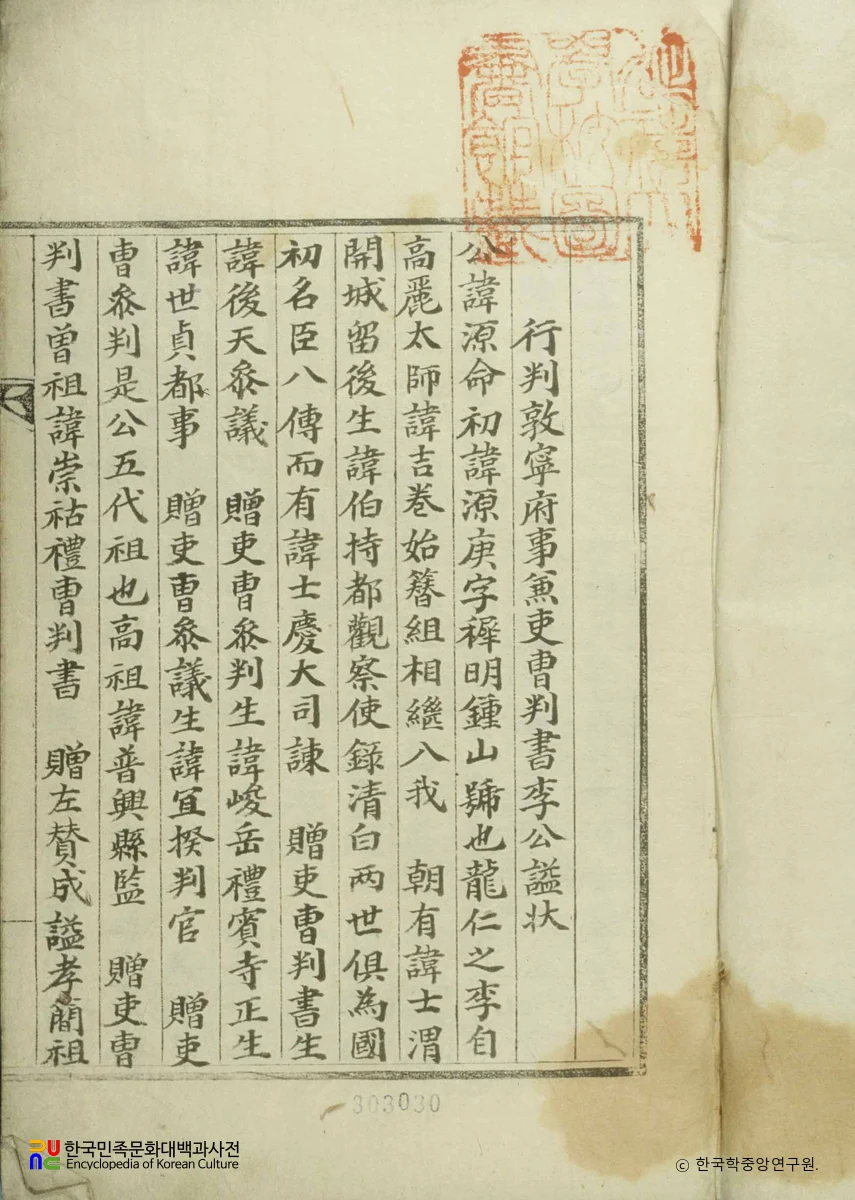 行判敦寧府事兼吏曹判書李公謚状
公諱源命初諱源庚字穉明鍾山號也龍仁之李自
高麗太師諱吉卷始簪組相繼入我 朝有諱士渭
開城留後生諱伯持都觀察使錄清白两世俱為國
初名臣八傳而有諱士慶大司諫 贈吏曹判書生
諱後天叅議 贈吏曹叅判生諱峻岳禮賓寺正生
諱世貞都事 贈吏曹叅議生諱宜揆判官 贈吏
曹叅判是公五代祖也高祖諱普興縣監 贈吏曹
判書曾祖諱崇祜禮曹判書 贈左賛成謚孝簡祖
303030
한국민족문화대백과사전
Encyclopedia of Korean Culture
© 한국학중앙연구원.